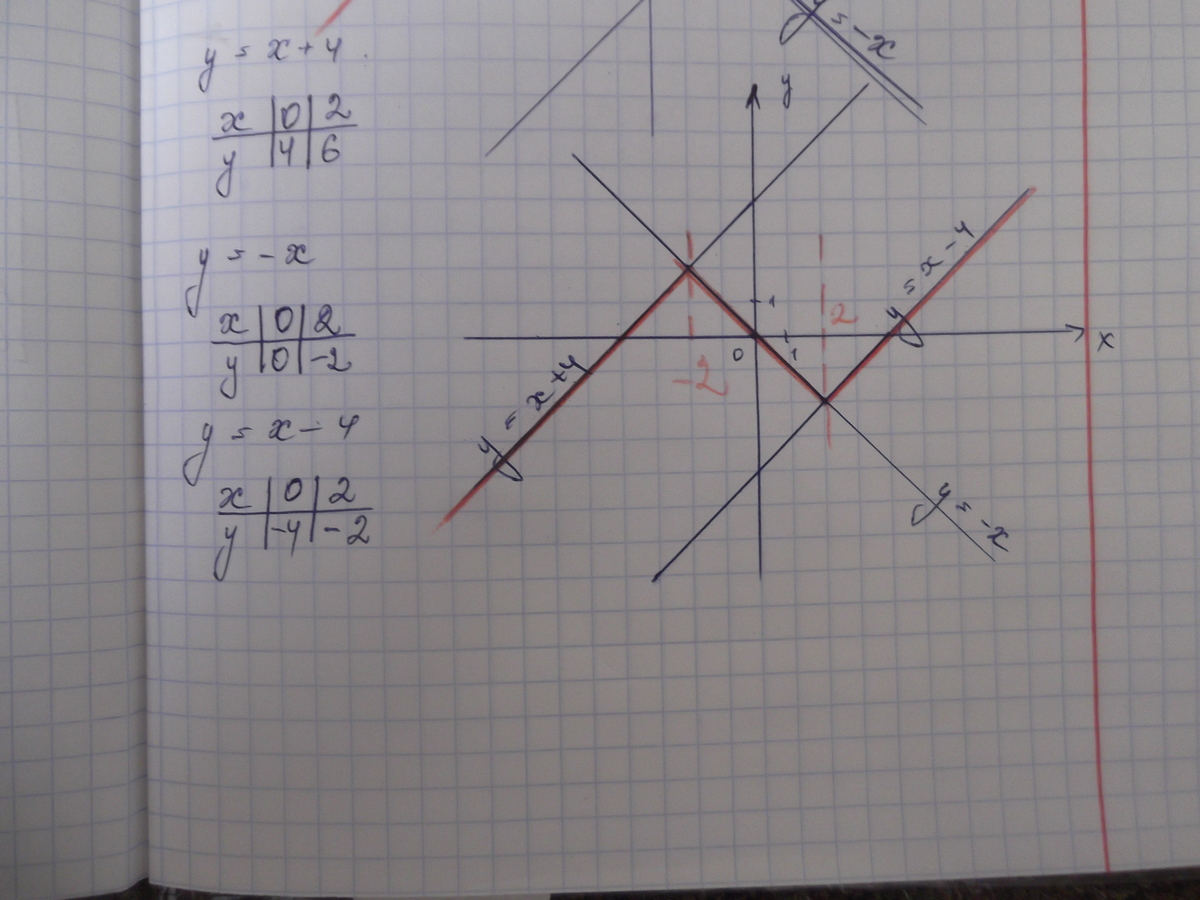 y = x + 4
x 0 2
y 4 6
y = -x
x 0 2
y 0 -2
y = x - 4
x 0 2
y -4 -2
y = -x
y
1
y = x - 4
2
x
0
1
-2
y = x + 4
y = -x